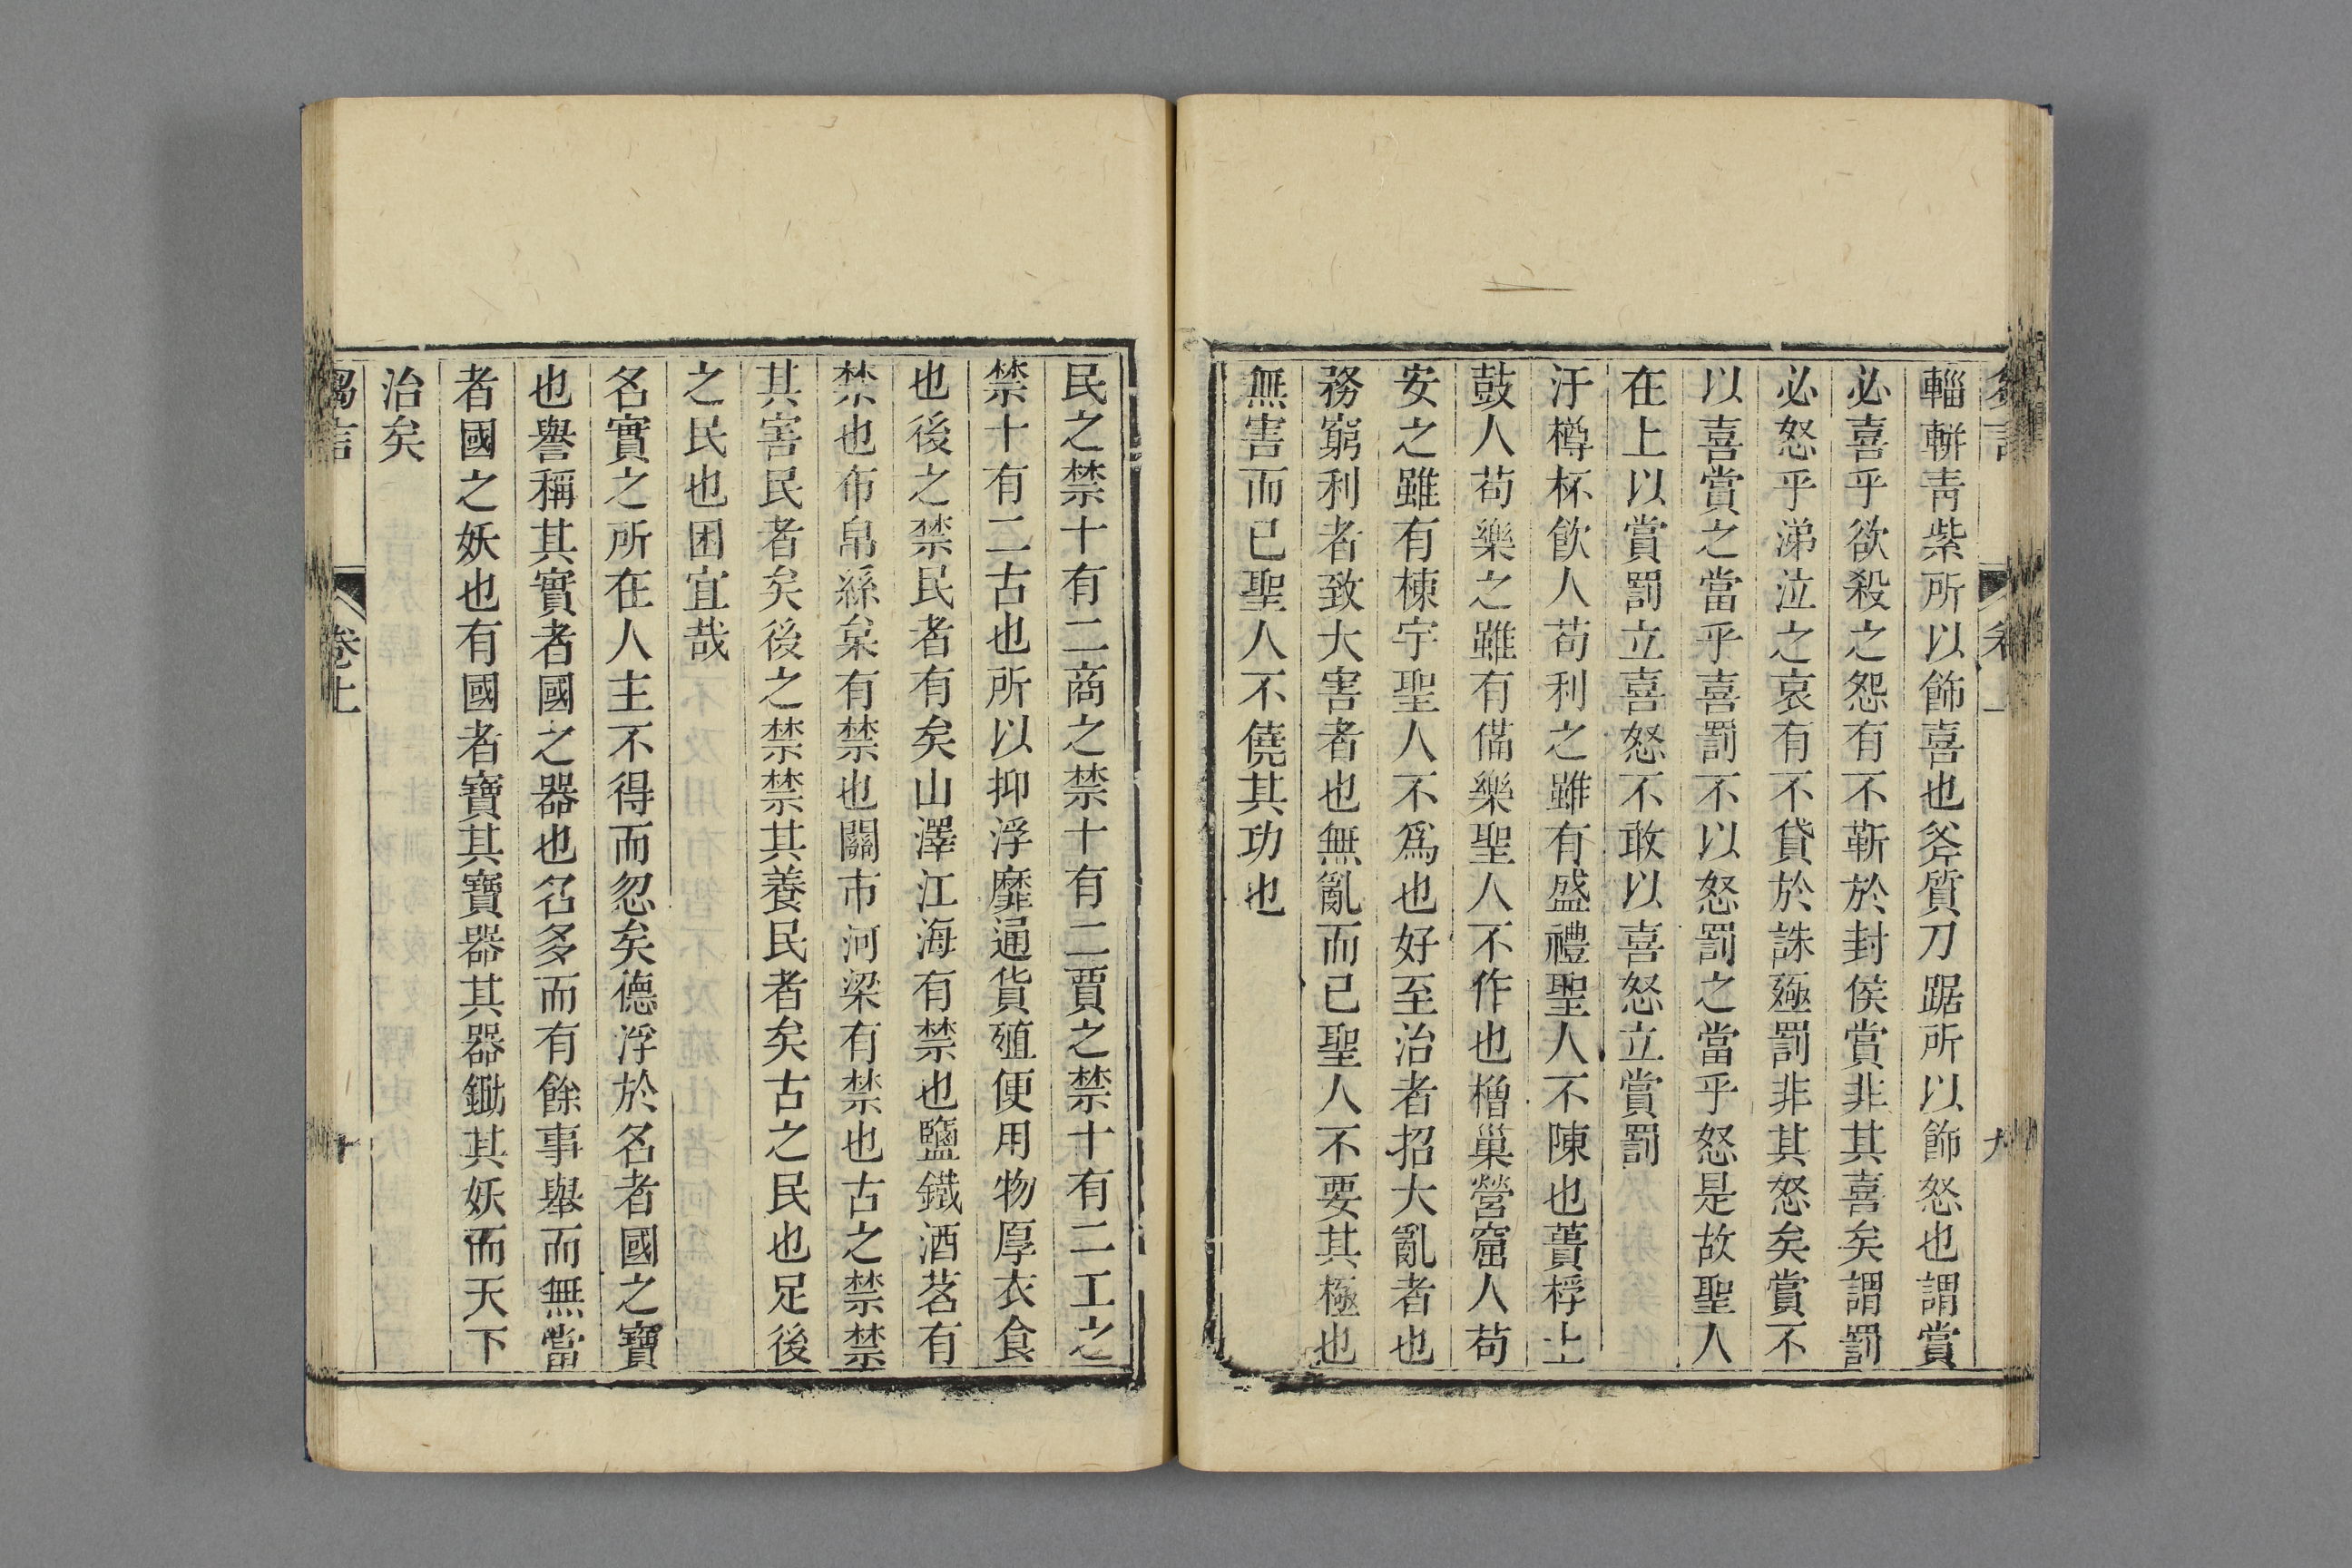 輜軿靑紫所以飾喜也斧質刀踞所以飾怒也謂賞
必喜乎欲殺之怨有不蘄於封侯賞非其喜矣謂罰
必怒乎涕泣之哀有不貸於誅殛罰非其怒矣賞不
以喜賞之當乎喜罰不以怒罰之當乎怒是故聖人
在上以賞罰立喜怒不敢以喜怒立賞罰
汙樽杯飮人苟利之雖有盛禮聖人不陳也蕢桴土
鼓人苟樂之雖有僃樂聖人不作也橧巢營窟人苟
安之雖有棟宇聖人不爲也好至治者招大亂者也
務窮利者致大害者也無亂而已聖人不要其極也
無害而已聖人不僥其功也
民之禁十有二商之禁十有二賈之禁十有二工之
禁十有二古也所以抑浮靡通貨殖便用物厚衣食
也後之禁民者有矣山澤江海有禁也鹽鐵酒茗有
禁也布帛絲枲有禁也關市河梁有禁也古之禁禁
其害民者矣後之禁禁其養民者矣古之民也足後
之民也困宜哉
名實之所在人主不得而忽矣德浮於名者國之寶
也譽稱其實者國之器也名多而有餘事舉而無當
者國之妖也有國者寶其寶器其器鋤其妖而天下
治矣
芻言 卷上 十